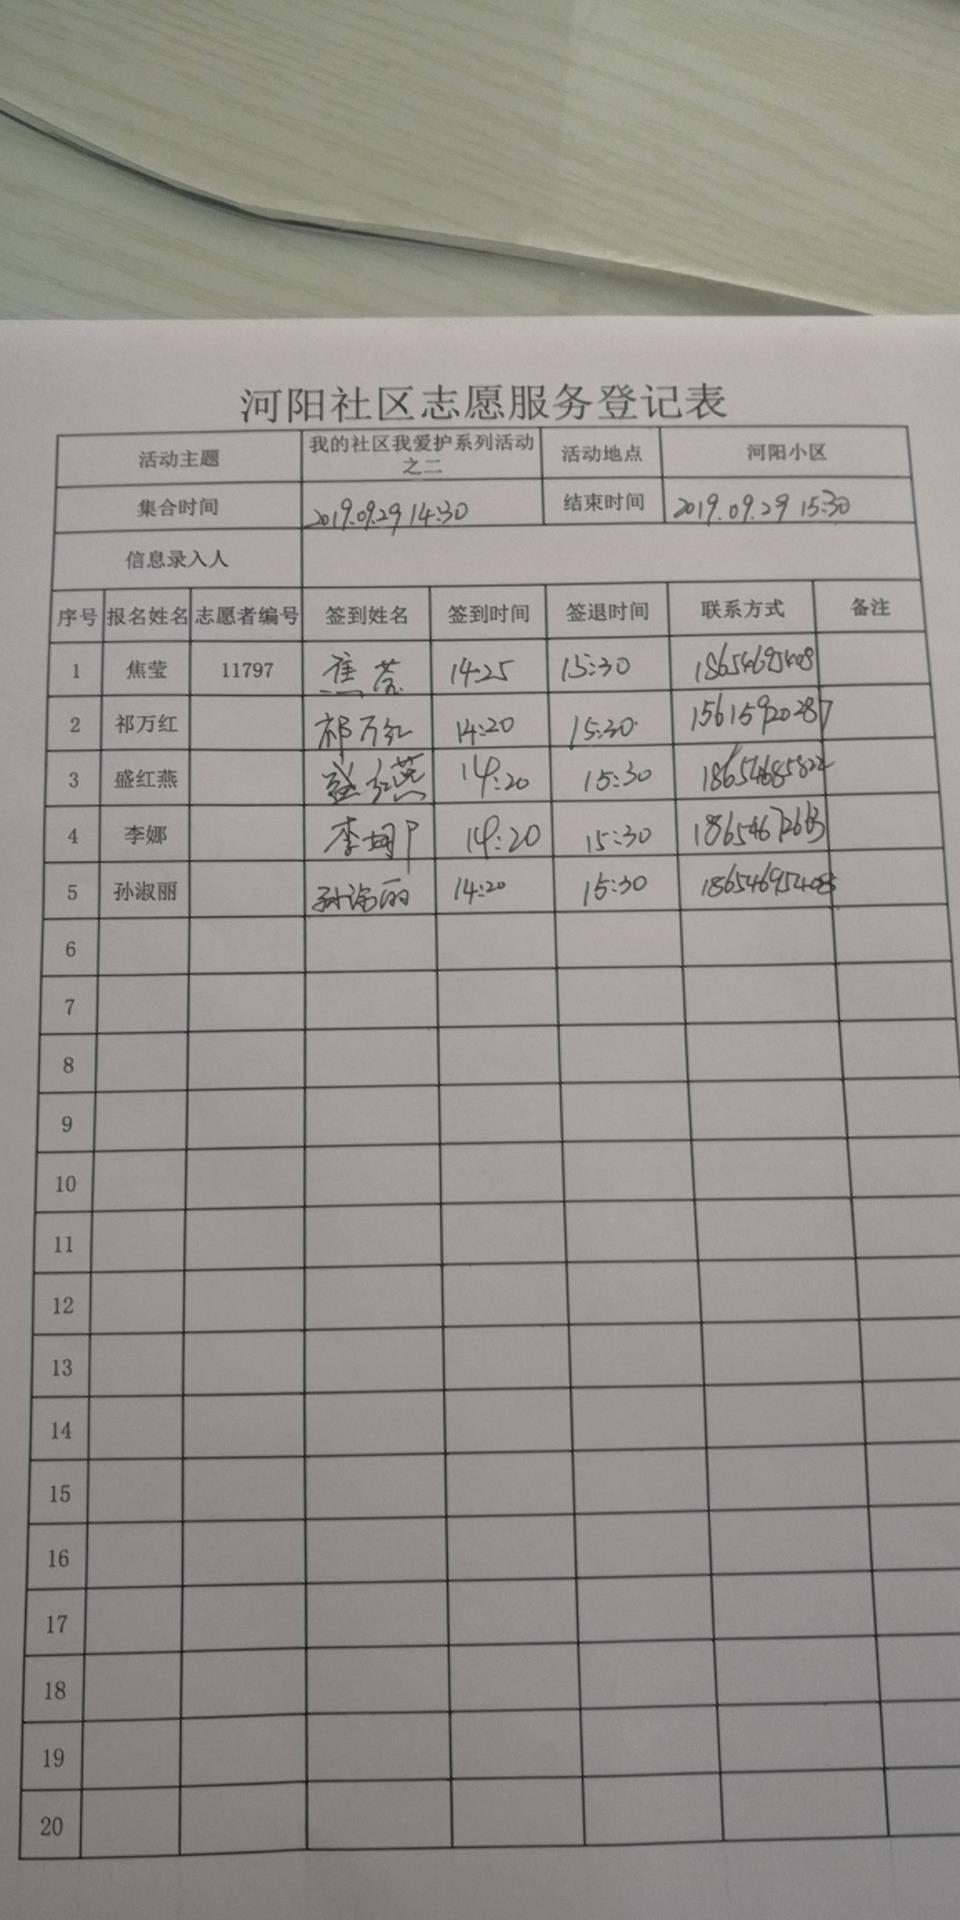 河阳社区志愿服务登记表
活动主题 我的社区我爱护系列活动之二 活动地点 河阳小区
集合时间 2019.09.29 14:30 结束时间 2019.09.29 15:30
信息录入人
序号 报名姓名 志愿者编号 签到姓名 签到时间 签退时间 联系方式 备注
1 焦莹 11797 焦莹 14:25 15:30 18654695408
2 祁万红 祁万红 14:20 15:30 15615920287
3 盛红燕 盛红燕 14:20 15:30
4 李娜 李娜 14:20 15:30 18654672663
5 孙淑丽 孙淑丽 14:20 15:30
6
7
8
9
10
11
12
13
14
15
16
17
18
19
20